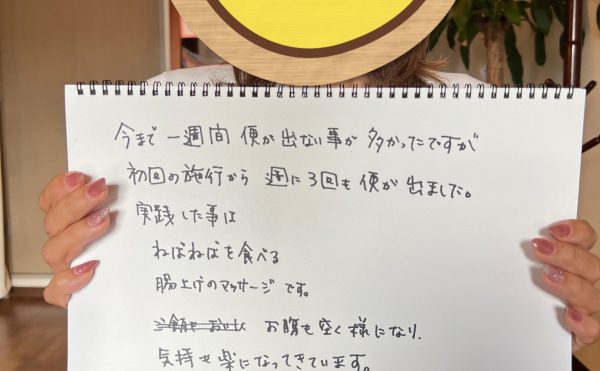 今まで 一週間 便が出ない事が 多かったですが
初回の施行から 週に3回も便が出ました。
実践した事は
ねばねばを食べる
腸上げのマッサージです。
お腹も空く様になり、
気持も楽になってきています。